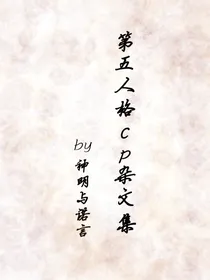 第五人格cp杂文集
by神明与诺言